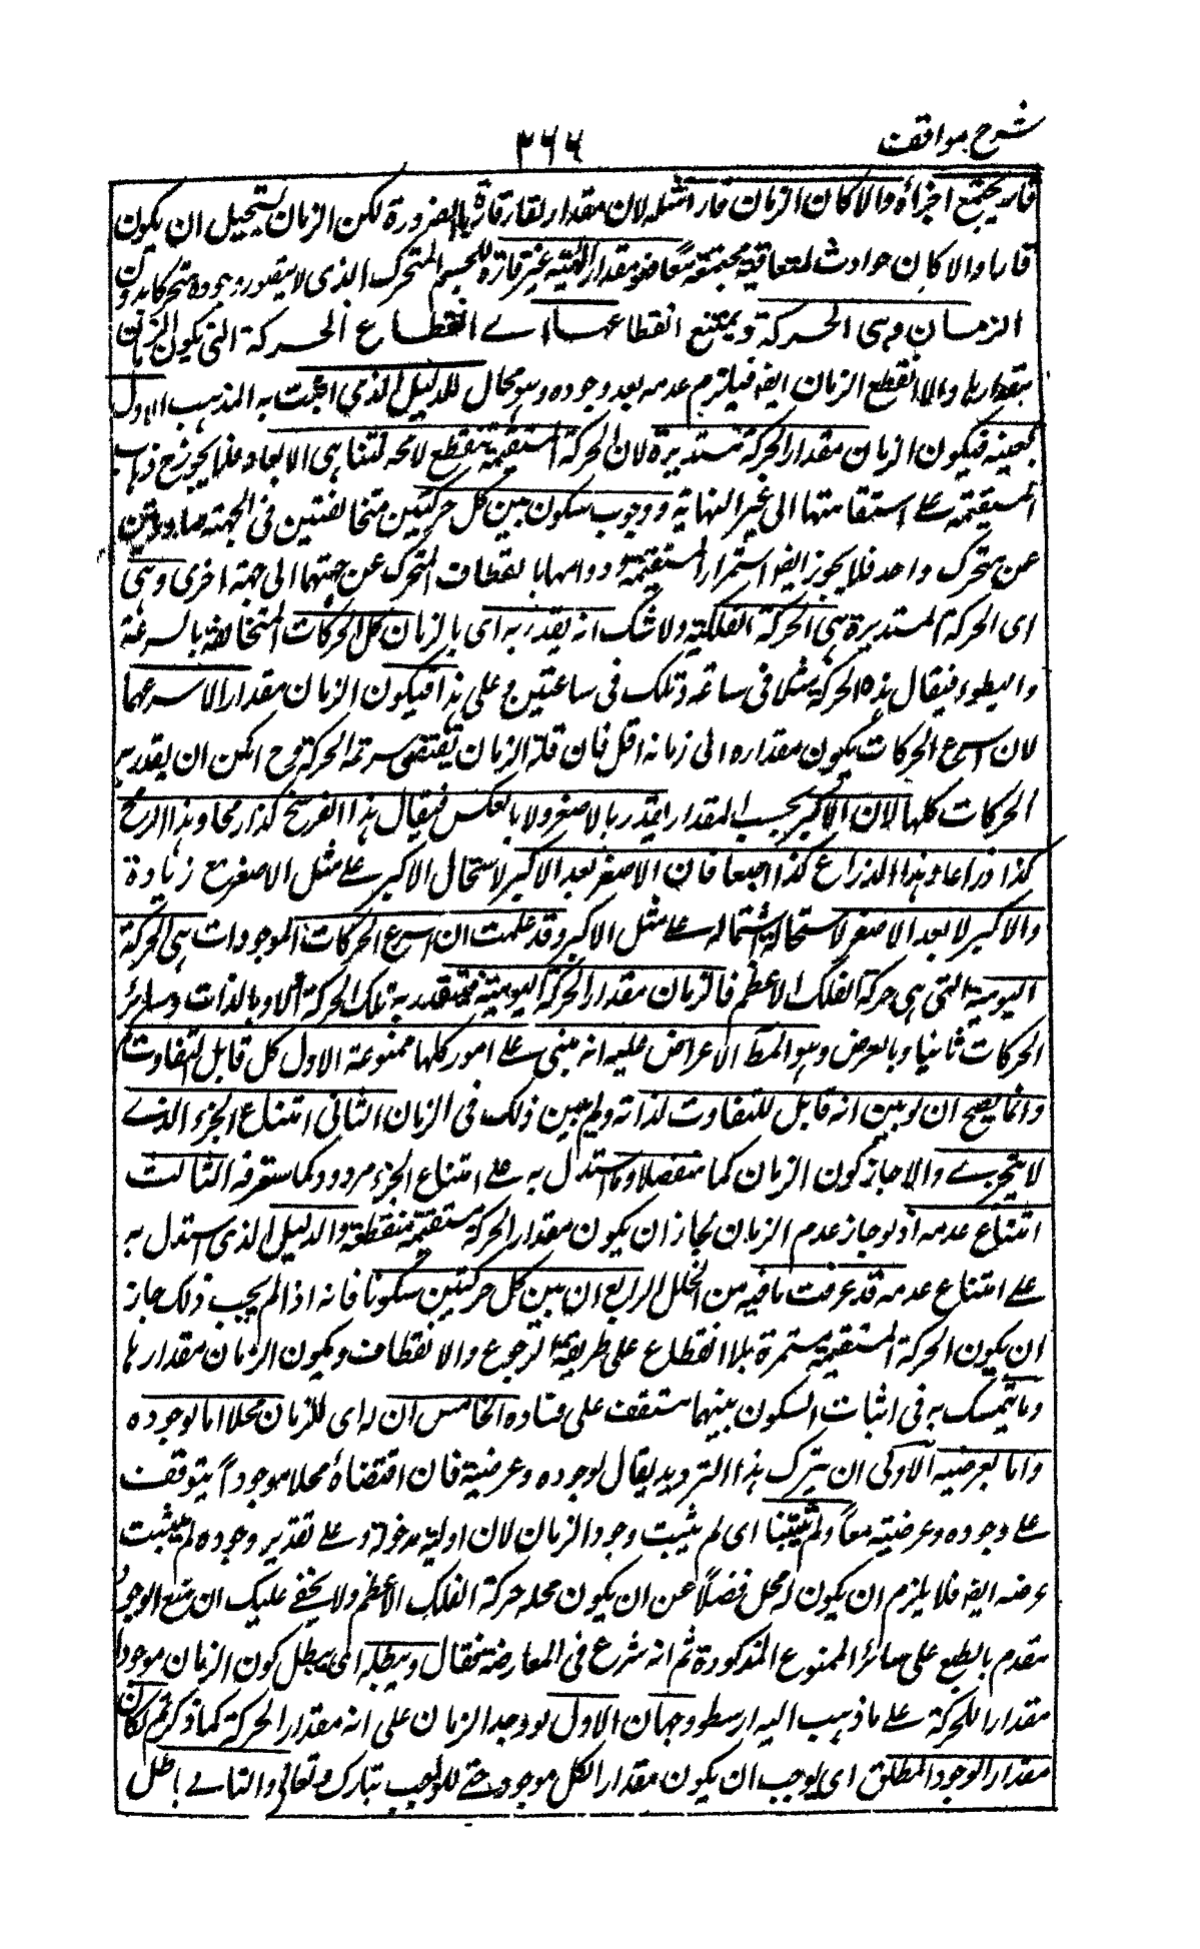 شرح مواقف
٣٦٦
قار يجتمع اجزاؤه والا كان الزمان قارا مثله لان مقدار القار قار بالضرورة لكن الزمان يستحيل ان يكون
قارا والا كان حوادث المتعاقبة مجتمعة معا فهو مقدار لهيئة غير قارة للجسم المتحرك الذى لا يتصور وجوده متحركا بدون
الزمان وهى الحركة ويمتنع انقطاعها اے انقطاع الحركة التى يكون الزمان
مقدارها والا انقطع الزمان ايضا فيلزم عدمه بعد وجوده وهو محال للدليل الذى اثبت به المذهب الاول
بعينه فيكون الزمان مقدار الحركة مستديرة لان الحركة المستقيمة تنقطع لا محة لتناهى الابعاد فلا يجوز ح ذهاب
المستقيمة علے استقامتها الى غير النهاية ووجوب سكون بين كل حركتين متخالفتين فى الجهة صادرتين
عن متحرك واحد فلا يجوز ايضا استمرار المستقيمة ودوامها بانعطاف المتحرك عن جهتها الى جهة اخرى وهى
اى الحركة المستديرة هى الحركة الفلكية ولا شك انه يقدر به اى بالزمان كل الحركات المتخالفة بالسرعة
والبطوء فيقال هذه الحركة مثلا فى ساعة وتلك فى ساعتين وعلى هذا فيكون الزمان مقدارا لاسرعها
لان اسرع الحركات يكون مقداره اى زمانه اقل فان قلة الزمان تقتضى سرعة الحركة وح امكن ان يقدر به
الحركات كلها لان الاكبر بحسب المقدار يقدر بالاصغر ولا بالعكس فيقال هذا الفرسخ كذا رمحا وهذا الرمح
كذا ذراعا وهذا الذراع كذا اصبعا فان الاصغر يعد الاكبر لاشتمال الاكبر علے مثل الاصغر مع زيادة
والاكبر لا يعد الاصغر لاستحالة اشتماله علے مثل الاكبر وقد علمت ان اسرع الحركات الموجودات هى الحركة
اليومية التى هى حركة الفلك الاعظم فالزمان مقدار الحركة اليومية فتقدر به تلك الحركة اولا وبالذات وسائر
الحركات ثانيا وبالعرض وهو المط الاعتراض عليه انه مبنى علے امور كلها ممنوعة الاول كل قابل للتفاوت كم
وانما يصح ان لو بين انه قابل للتفاوت لذاته ولم يبين ذلك فى الزمان الثانى امتناع الجزء الذے
لا يتجزے والا جاز كون الزمان كما منفصلا وما استدل به علے امتناع الجزء مردود كما ستعرفه الثالث
امتناع عدمه اذ لو جاز عدم الزمان لجاز ان يكون مقدارا لحركة مستقيمة منقطعة والدليل الذى استدل به
علے امتناع عدمه قد عرفت ما فيه من الخلل الرابع ان بين كل حركتين سكونا فانه اذا لم يجب ذلك جاز
ان يكون الحركة المستقيمة مستمرة بلا انقطاع على طريقة الرجوع والانعطاف ويكون الزمان مقدارها
وما تمسك به فى اثبات السكون بينهما ستقف على فساده الخامس ان له اى للزمان محلا اما لوجوده
واما لعرضيته الاولى ان يترك هذا الترديد يقال لوجوده وعرضيته فان اقتضاه محلا موجودا يتوقف
علے وجوده وعرضيته معا ولم يثبتا اى لم يثبت وجود الزمان لان اولية مدخولة وعلے تقدير وجوده لم يثبت
عرضه ايضا فلا يلزم ان يكون له محل فضلا عن ان يكون محله حركة الفلك الاعظم ولا يخفے عليك ان منع الوجود
مقدم بالطبع على سائر المنوع المذكورة ثم انه شرع فى المعارضة فقال ويبطله اى يبطل كون الزمان موجودا
مقدارا للحركة علے ما ذهب اليه ارسطو وجهان الاول لو وجد الزمان على انه مقدار الحركة كما ذكرتم لكان
مقدار الوجود المطلق اى لوجب ان يكون مقدارا لكل موجود حتے للواجب تبارك وتعالى والتالے باطل